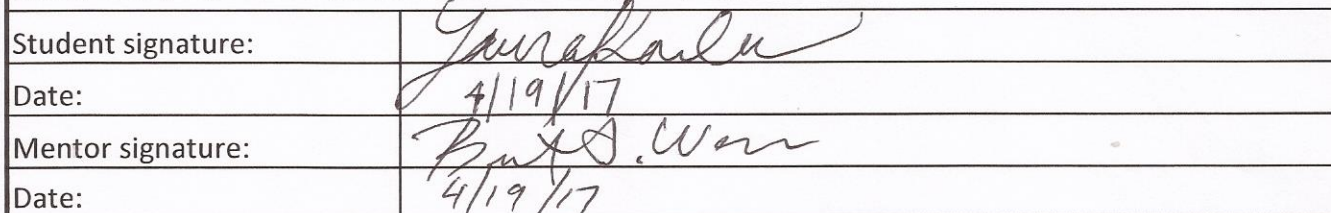 Student signature:
Date: 4/19/17
Mentor signature:
Date: 4/19/17